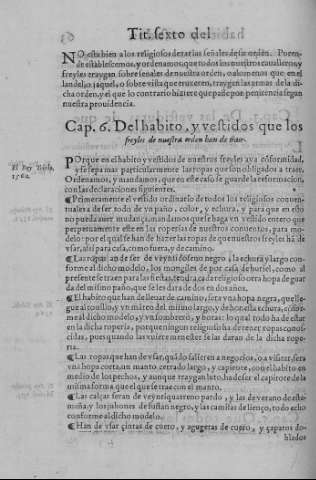 Tit. sexto del
NO está bien a los religiosos dexar las señales de su orden. Poren-
de establescemos, y ordenamos, que todos los nuestros caualleros, y
freyles traygan sobre señales de nuestra orden, o alomenos que en el
la dicha orden, y el que lo contrario hiziere que pase por penitencia segun
nuestra prouidencia.
Cap. 6. Del habito, y vestidos que los
freyles de nuestra orden han de traer.
El Rey
1560.
POrque en el habito y vestidos de nuestros freyles aya cõformidad,
y se sepa mas particularmente las ropas que son obligados a traer.
Ordenamos, y mandamos, que en este caso se guarde la reformacion,
con las declaraciones siguientes.
¶ Primeramente el vestido ordinario de todos los religiosos conuen-
tuales a de ser todo de vn paño, color, y echura, y para que en esto
no pueda auer mudança, mandamos que se haga vn vestido entero que
perpetuamente esté en las roperias de nuestros conuentos, para mo-
delo: por el qual se han de hazer las ropas de que nuestros freyles hã de
vsar, assi para casa, como fuera, y de camino.
¶ Las ropas an de ser de veyntidoseno negro, la echura y largo con-
forme al dicho modelo, los mongiles de por casa de buriel, como al
presente se traen para las fiestas, tendra cada religioso otra hopa de guar
da del mismo paño, que se les dara de dos en dos años.
¶ El habito que han de lleuar de camino, sera vna hopa negra, que lle-
gue al touillo, y vn mãteo del mismo largo, y de honesta echura, cõfor-
me al dicho modelo, y vn sombrero, y botas: lo qual todo ha de estar
en la dicha roperia, porque ningun religioso ha de tener ropas conos-
cidas, pues quando las vuiere menester se las daran de la dicha rope-
ria.
¶ Las ropas que han de vsar, quãdo salieren a negocios, o a visitar, sera
vna hopa corta, vn manto cerrado largo, y capirote, con el habito en
medio de los pechos, y aunque traygan luto, ha de ser el capirote de la
misma forma que el que se trae con el manto.
¶ Las calças seran de veyntiquatreno pardo, y las de verano de esta-
meña, y los jubones de fustan negro, y las camisas de lienço, todo echo
conforme al dicho modelo.
¶ Han de vsar cintas de cuero, y agugetas de cuero, y çapatos do-
blados